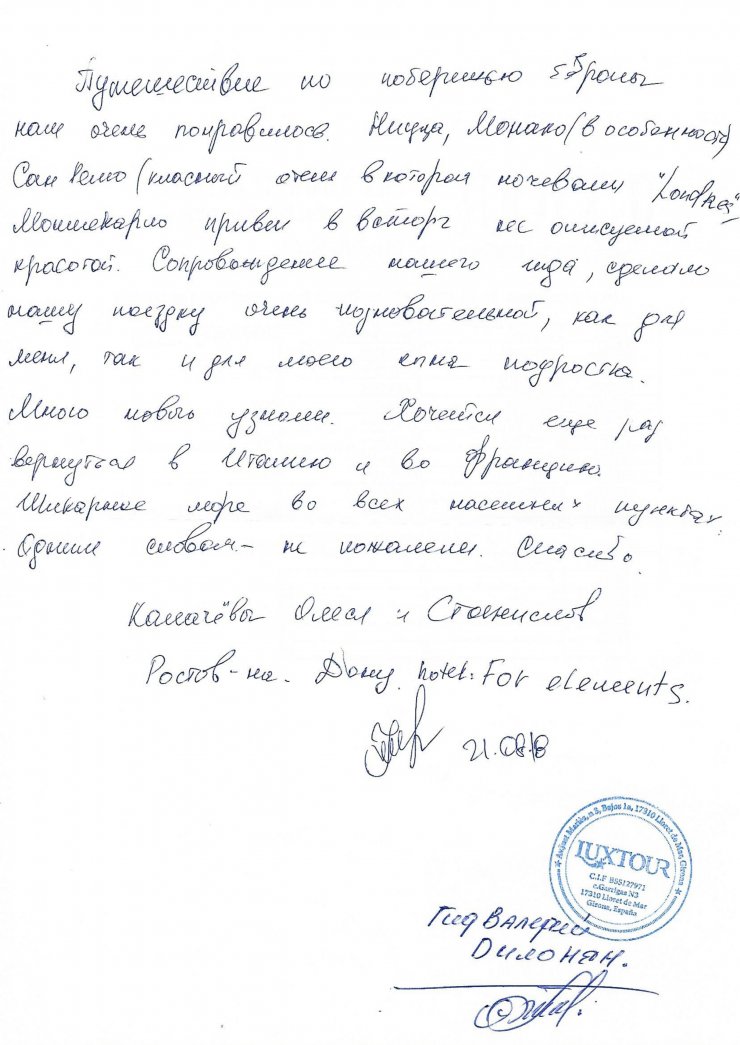 Путешествие по побережью Европы
нам очень понравилось. Ницца, Монако (в особенности)
Сан Ремо (класный отель в котором ночевали "Londres"
Монтекарло привел в восторг неописуемой
красотой. Сопровождение нашего гида, сделало
нашу поездку очень познавательной, как для
меня, так и для моего сына подростка.
Много нового узнали. Хочется еще раз
вернуться в Италию и во Францию.
Шикарное море во всех населенных пунктах.
Одним словом – не пожалели. Спасибо.
Олеся и Станислав
Ростов-на-Дону hotel: For elements.
21.08.18
LUXTOUR
C.I.F B55127971
c.Garrigas N3
17310 Lloret de Mar
Girona, España
Гид Валерий
Дилонян.